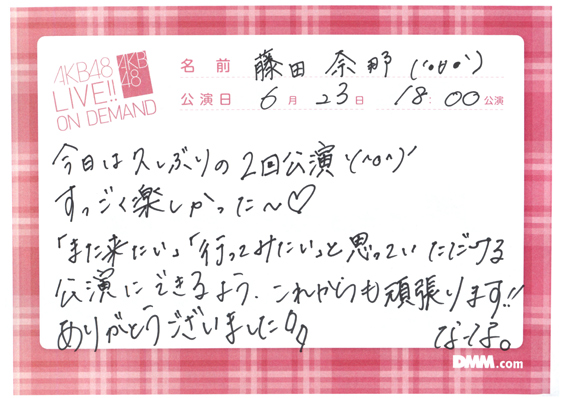 AKB48
LIVE!!
ON DEMAND
AKB
48
名 前 藤田 奈那 (*´ω`*)
公演日 6 月 23 日 18:00 公演
今日は久しぶりの2回公演\(^o^)/
すっごく楽しかった〜♡
「また来たい」「行ってみたい」と思っていただける
公演にできるよう、これからも頑張ります!!
ありがとうございました
なっな。
DMM.com